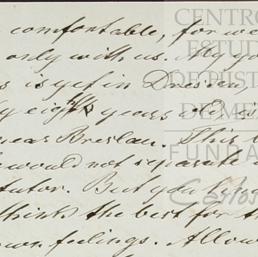 comfortable, for we
only with us. My yo
is yet in Dresden,
ly eight years old, is
near Breslau. This
would not separate
tutor. But you
thinks the best for t
own feelings. Allow
CENTRO
ESTUD
DE HIST
DE ME
FUNDA